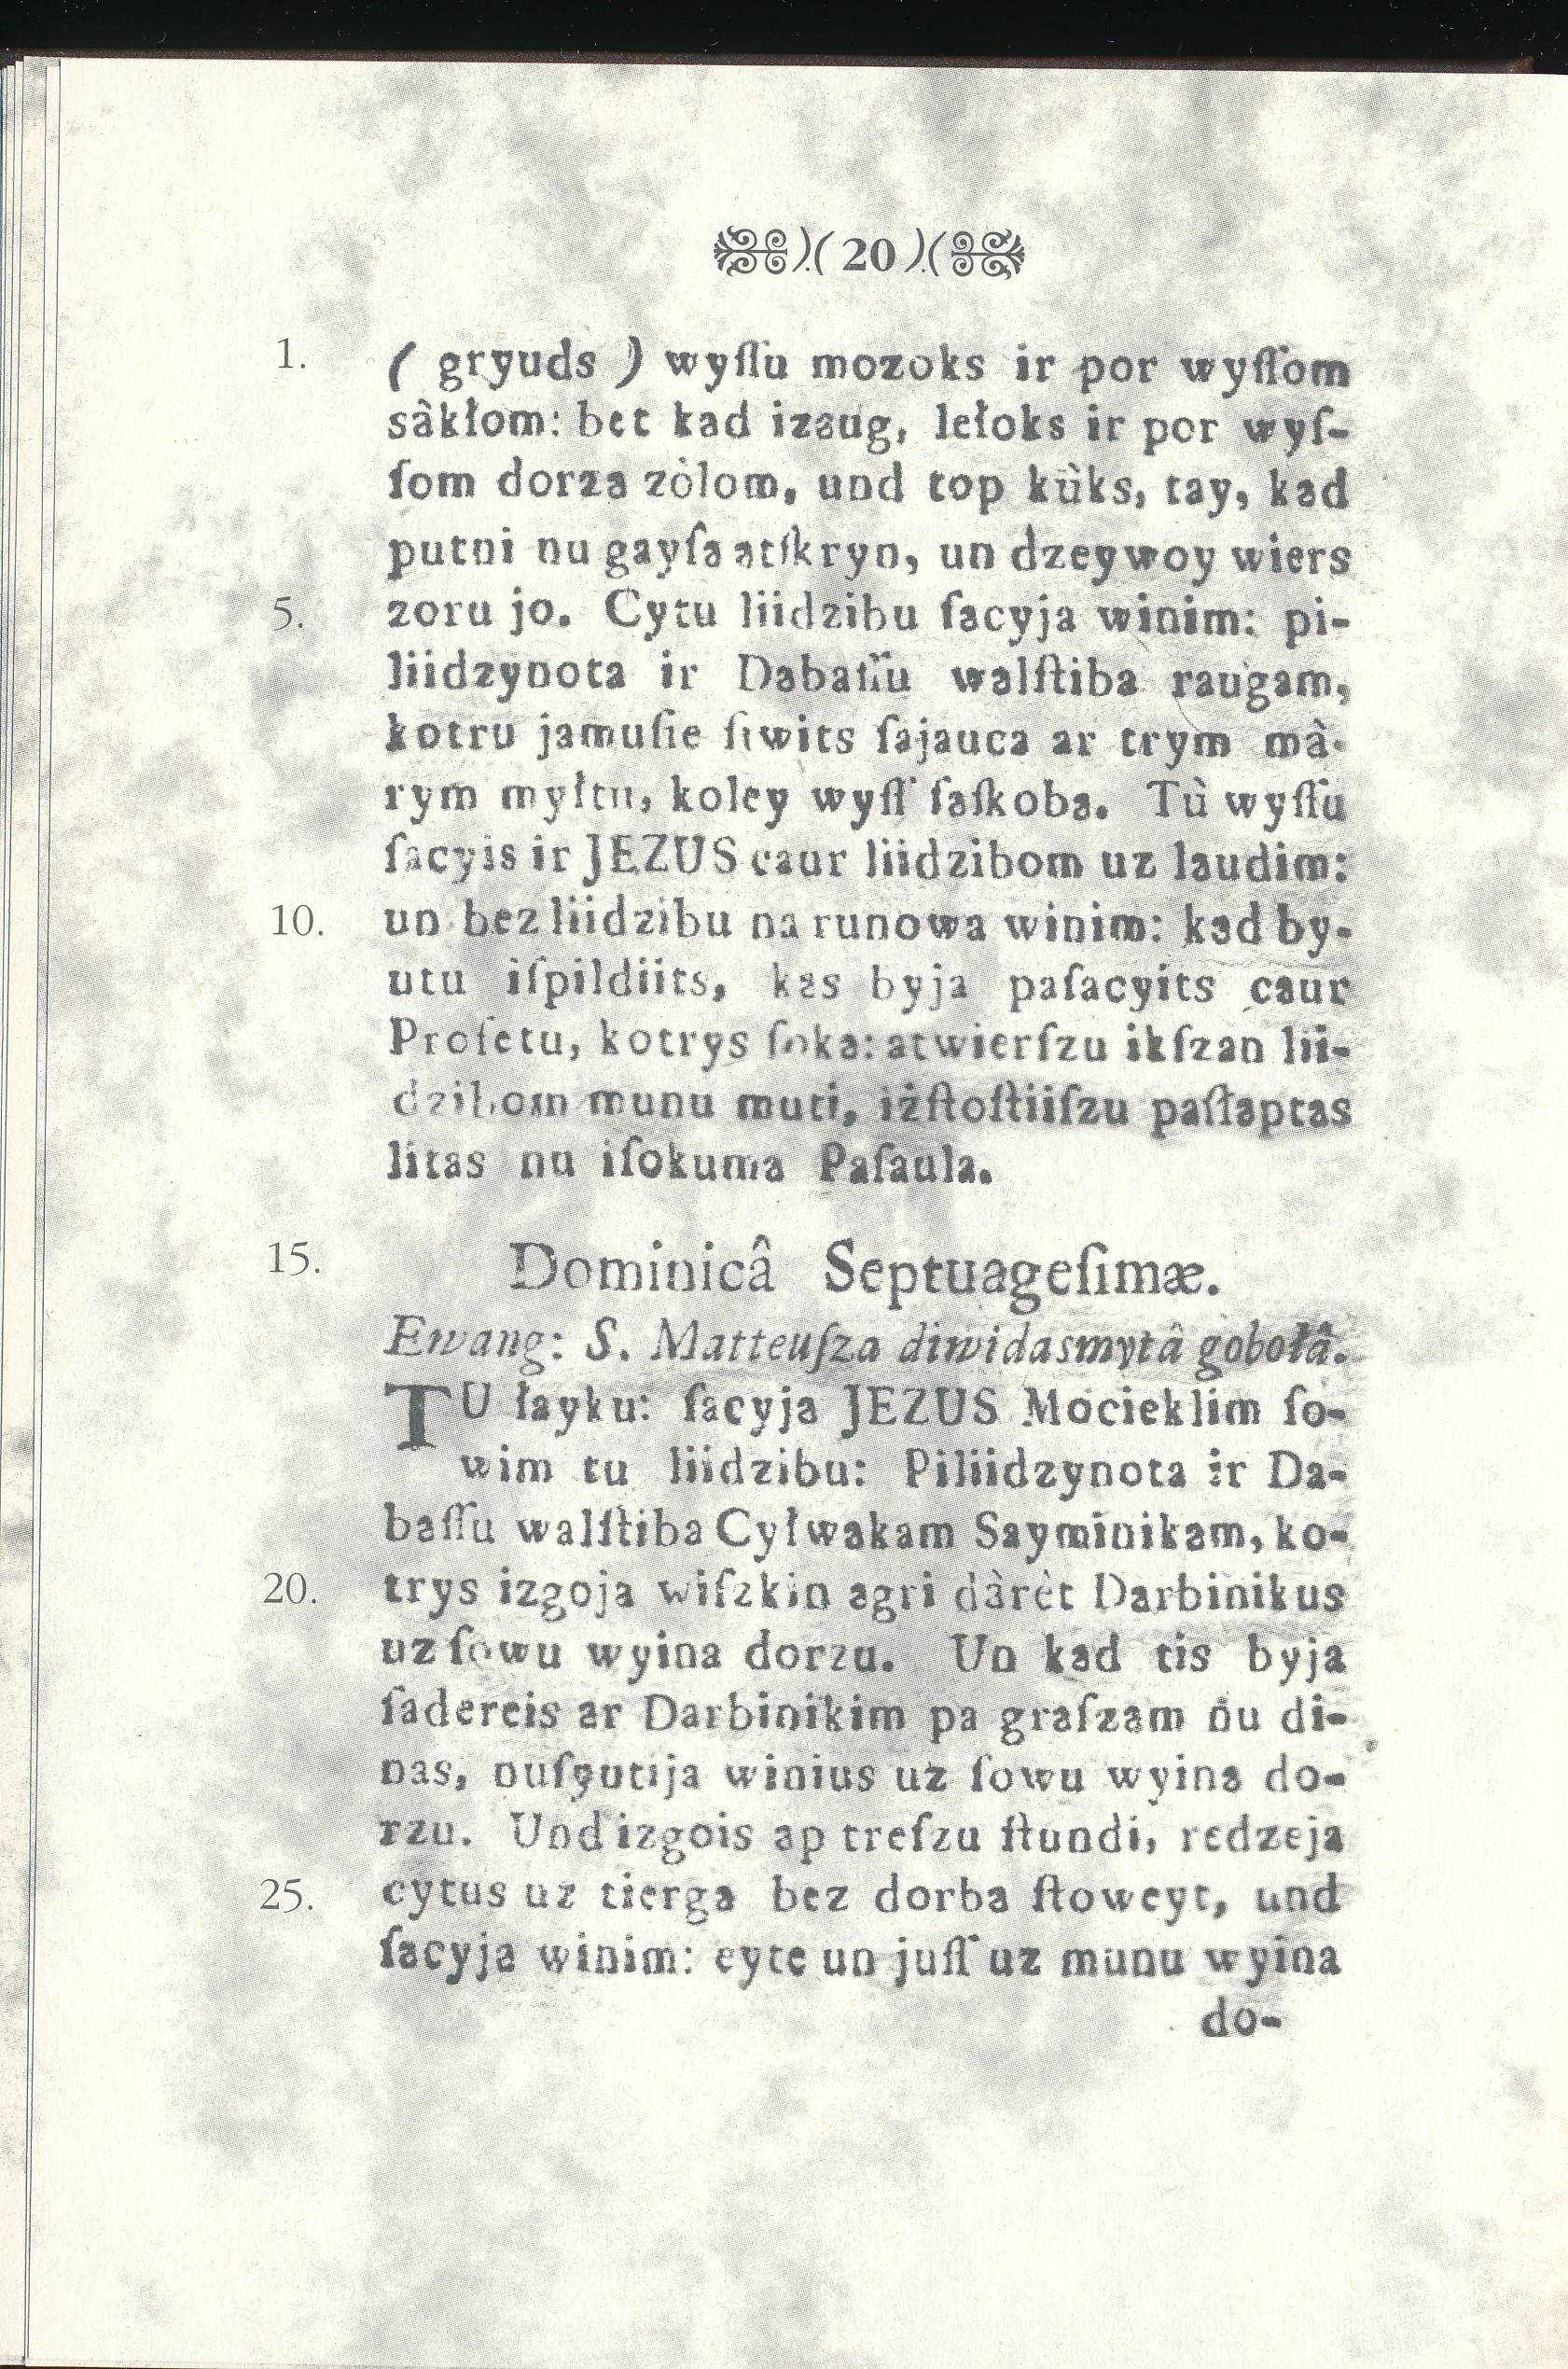 ).( 20 ).(
1. ( gryuds ) wyſſu mozoks ir por wyſſom
sâkłom: bet kad izaug, lełoks ir por wyſ-
ſom dorza zòlom, und top kùks, tay, kad
putni nu gayſa atſkryn, un dzeywoy wiers
5. zoru jo. Cytu liidzibu ſacyja winim: pi-
liidzynota ir Dabaſſu walſtiba raugam,
kotru jamuſie ſiwits ſajauca ar trym mà-
rym myłtu, koley wyſſ ſaſkoba. Tù wyſſu
ſacyis ir JEZUS caur liidzibom uz laudim:
10. un bez liidzibu na runowa winim: kad by-
utu iſpildiits, kas byja paſacyits caur
Profetu, kotrys ſoka: atwierſzu ikſzan lii-
dzibom munu muti, iżſtoſtiiſzu paſłaptas
litas nu iſokuma Paſaula.
15. Dominicâ Septuageſimæ.
Ewang: S. Matteuſza diwidasmytâ gobołâ.
TU łayku: ſacyja JEZUS Mocieklim ſo-
wim tu liidzibu: Piliidzynota ir Da-
baſſu walſtiba Cyłwakam Sayminikam, ko-
20. trys izgoja wiſzkin agri dàrèt Darbinikus
uz ſowu wyina dorzu. Un kad tis byja
ſadereis ar Darbinikim pa graſzam nu di-
nas, nuſyutija winius uz ſowu wyina do-
rzu. Und izgois ap treſzu ſtundi, redzeja
25. cytus uz tierga bez dorba ſtoweyt, und
ſacyja winim: eyte un juſſ uz munu wyina
do-